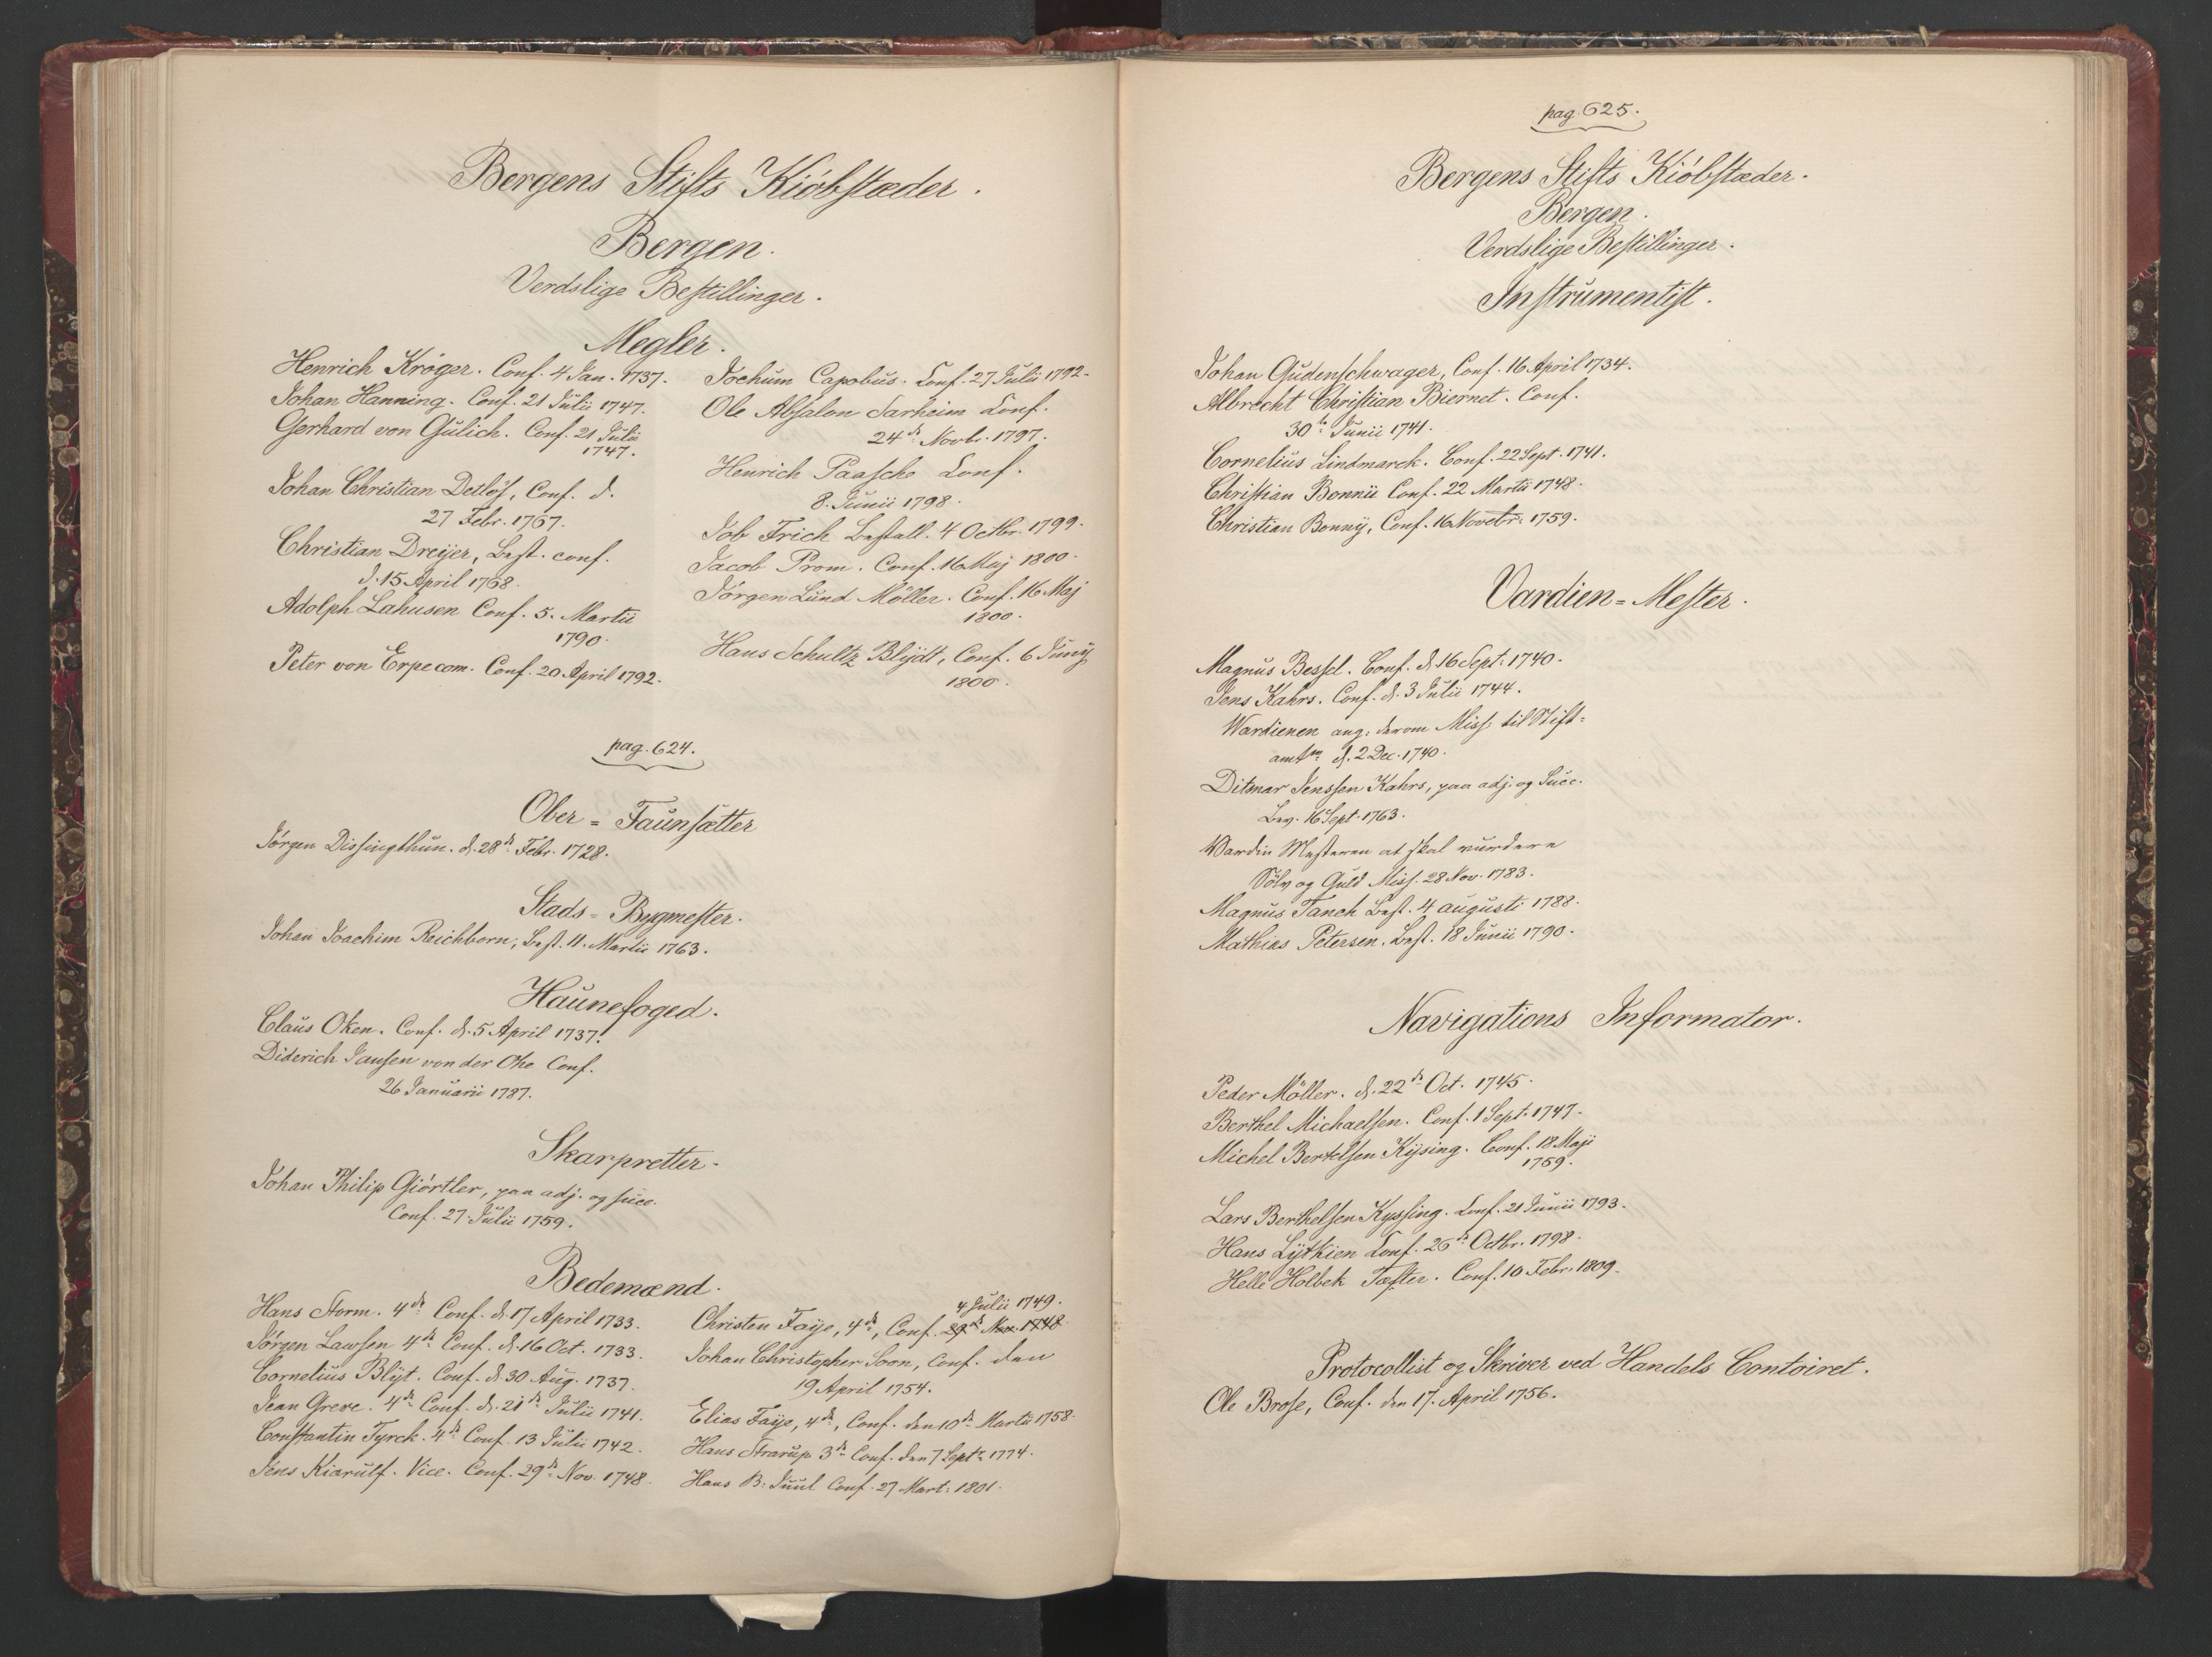 Bergens Stifts Kiöbstæder.
Bergen.
Verdslige Bestillinger.
Megler.
Henrich Kröger. Conf. 4 Jan. 1737.
Johan Hanning. Conf. 21 Julii 1747.
Gerhard von Gülich. Conf. 21 Julii
1747.
Johan Christian Detlöf, Conf. d.
27 Febr. 1767.
Christian Dreyer, Best. conf.
d. 15 April 1768.
Adolph Lahusen Conf. 5. Martii
1790.
Peter von Erpecom. Conf. 20 April 1792.
Jochum Capobus. Conf. 27 Julii 1792.
Ole Absalon Sarheim Conf.
24de Novbr. 1797.
Henrich Paasche Conf.
8. Junii 1798.
Job Frich Bestall. 4 Octbr. 1799.
Jacob Prom. Conf. 16 Maj 1800.
Jörgen Lund Möller. Conf. 16 Maj
1800.
Hans Schultz Blydt, Conf. 6 Junij
1800.
pag. 624.
Ober = Faunsætter
Jörgen Dissingthun. d. 28de Febr. 1728.
Stads = Bygmester.
Johan Joachim Reichborn, Best. 11. Martii 1763.
Haunefoged.
Claus Oken. Conf. d. 5 April 1737.
Diderich Jansen von der Ohe Conf.
26 Januarii 1787.
Skarpretter.
Johan Philip Giörtler, paa adj. og succ.
Conf. 27. Julii 1759.
Bedemænd.
Hans Storm. 4de Conf. d. 17 April 1733.
Jörgen Lawsen 4de Conf. d. 16 Oct. 1733.
Cornelius Blyt. Conf. d. 30 Aug. 1737.
Jean Greve. 4de Conf. d. 21de Julii 1741.
Constantin Tyrck. 4de Conf. 13 Julii 1742.
Jens Kiærulf. Vice. Conf. 29de Nov. 1748.
4 Julii 1749.
Christen Faye, 4de, Conf. 29de Nov. 1748
Johan Christopher Soon, Conf. den
19 April 1754.
Elias Faye, 4de, Conf. den 10de Martii 1758.
Hans Strarup 3de Conf. den 7 Septr 1774.
Hans B. Juul Conf. 27 Mart. 1801.
pag. 625.
Bergens Stifts Kiöbstæder.
Bergen.
Verdslige Bestillinger.
Instrumentist.
Johan Gudenschwager, Conf. 16 April 1734.
Albrecht Christian Biernet. Conf.
30te Junii 1741.
Cornelius Lindmarck. Conf. 22 Sept. 1741.
Christian Bonnii Conf. 22 Martii 1748.
Christian Bonny, Conf. 16 Novebr. 1759.
Vardien = Mester.
Magnus Bessel. Conf. d. 16 Sept. 1740.
Jens Kahrs. Conf. d. 3 Julii 1744.
Wardienen ang. derom Miss. til Stift=
amtm d. 2 Dec. 1740.
Ditmar Jenssen Kahrs, paa adj. og Succ.
Bev. 16 Sept. 1763.
Wardin Mesteren at skal vurdere
Sölv og Guld Miss. 28 Nov. 1783.
Magnus Tanch Best. 4 augusti 1788.
Mathias Petersen. Best. 18 Junii 1790.
Navigations Informator.
Peder Möller. d. 22de Oct. 1745.
Berthel Michaelsen. Conf. 1 Sept. 1747.
Michel Bertelsen Kysing. Conf. 18 Maji
1759.
Lars Berthelsen Kyssing. Conf. 21 Junii 1793.
Hans Lytkien Conf. 26de Octbr. 1798.
Helle Holbek Tæster. Conf. 10 Febr. 1809.
Protocollist og Skriver ved Handels Contoiret.
Ole Brose, Conf. den 17. April 1756.